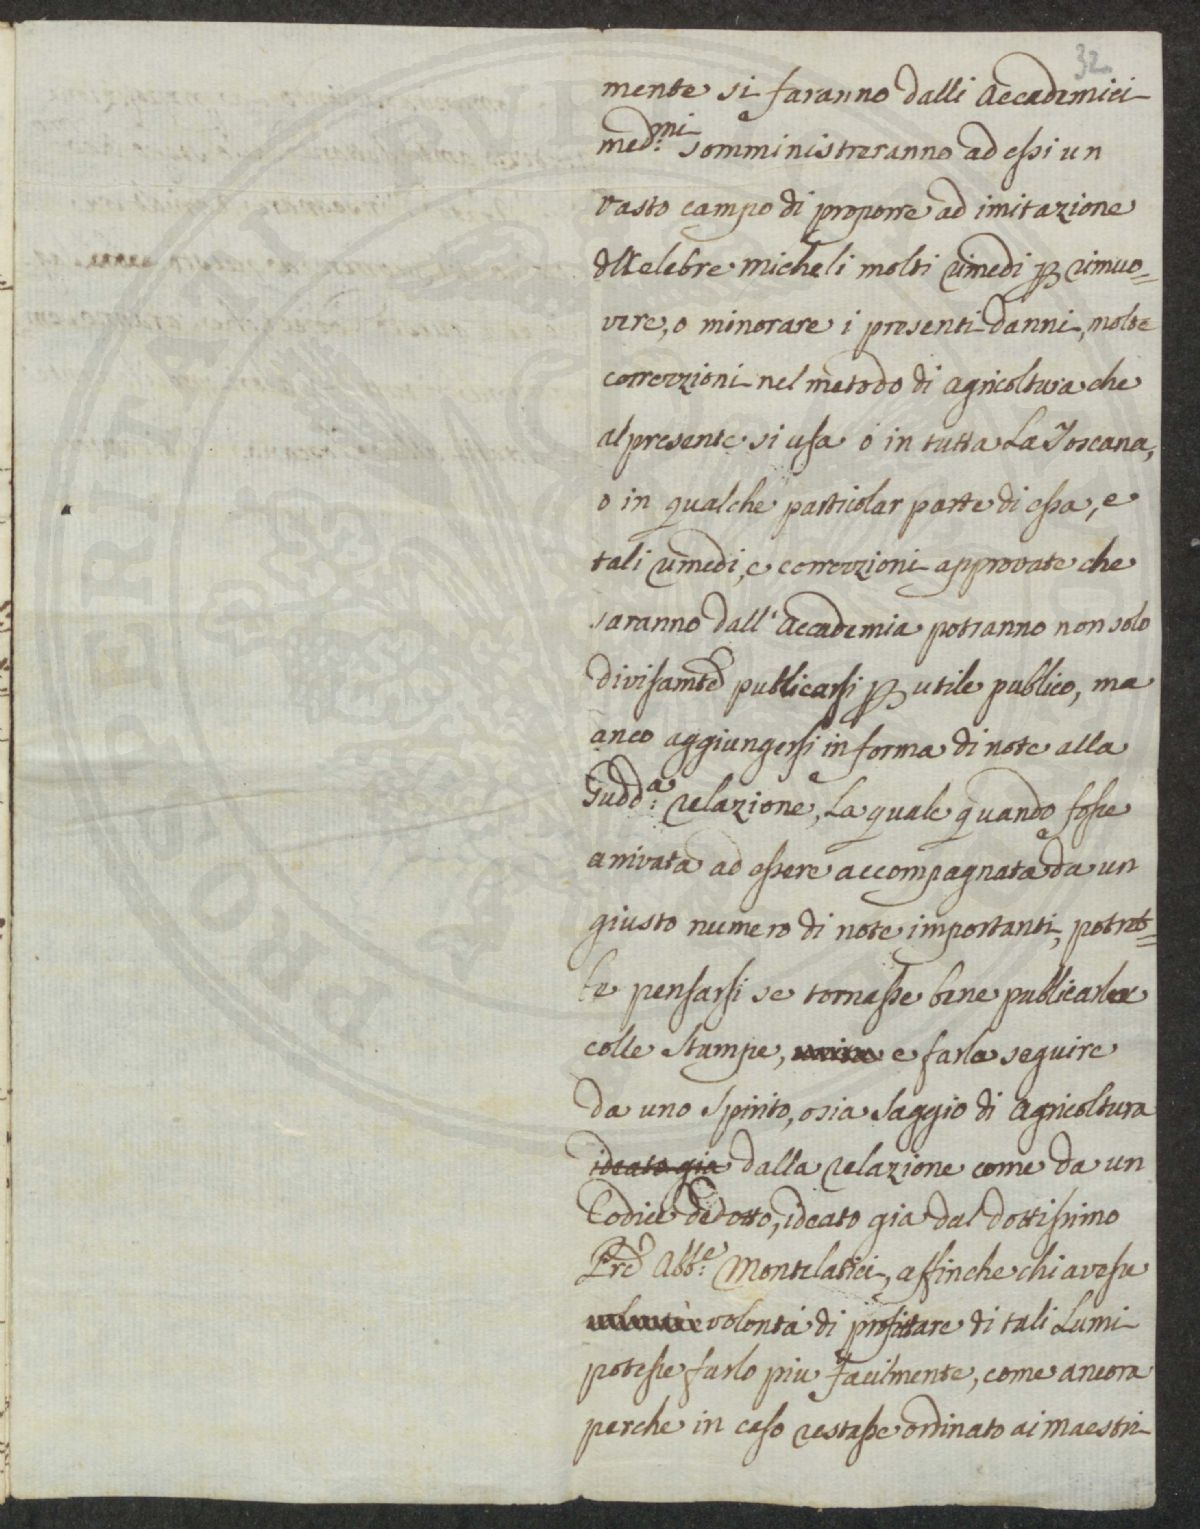 32
mente si faranno dalli Accademici
med.mi somministreranno ad essi un
vasto campo di proporre ad imitazione
del Celebre Micheli molti rimedi p rimuo=
vere, o minorare i presenti danni, molte
correzzioni nel metodo di agricoltura che
al presente si usa o in tutta La Toscana,
o in qualche particolar parte di essa, e
tali rimedi, e correzzioni approvate che
saranno dall' Accademia potranno non solo
divisamte publicarsi p utile publico, ma
anco aggiungersi in forma di note alla
sudd.a relazione, La quale quando fosse
arrivata ad essere accompagnata da un
giusto numero di note importanti, potreb=
be pensarsi se tornasse bene publicarla
colle Stampe, e farla seguire
da uno spirito, o sia saggio di Agricoltura
ideato gia dalla relazione come da un
Codice dedotto, ideato gia dal dottissimo
Pre Abb.e Montelatici, affinche chi avesse
volontà di profittare di tali Lumi
potesse farlo piu facilmente, come ancora
perche in caso restasse ordinato ai Maestri
PROPRIETÀ PUBLICA